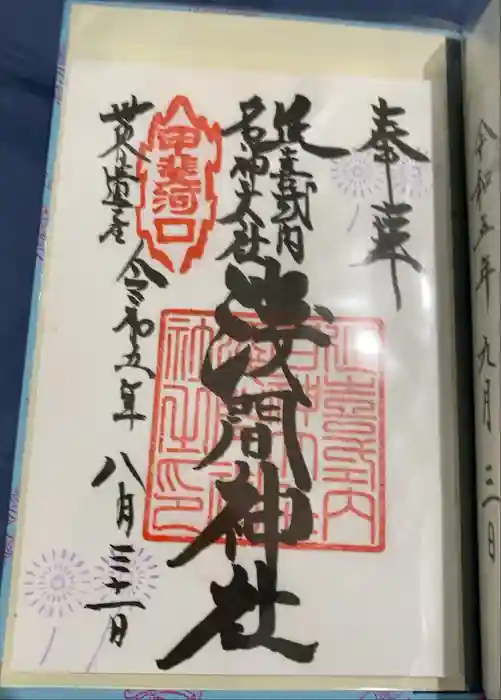 奉拝
延喜式内
名神大社
浅間神社
甲斐河口
世界遺産
令和五年 八月三十一日
令和五年九月三日